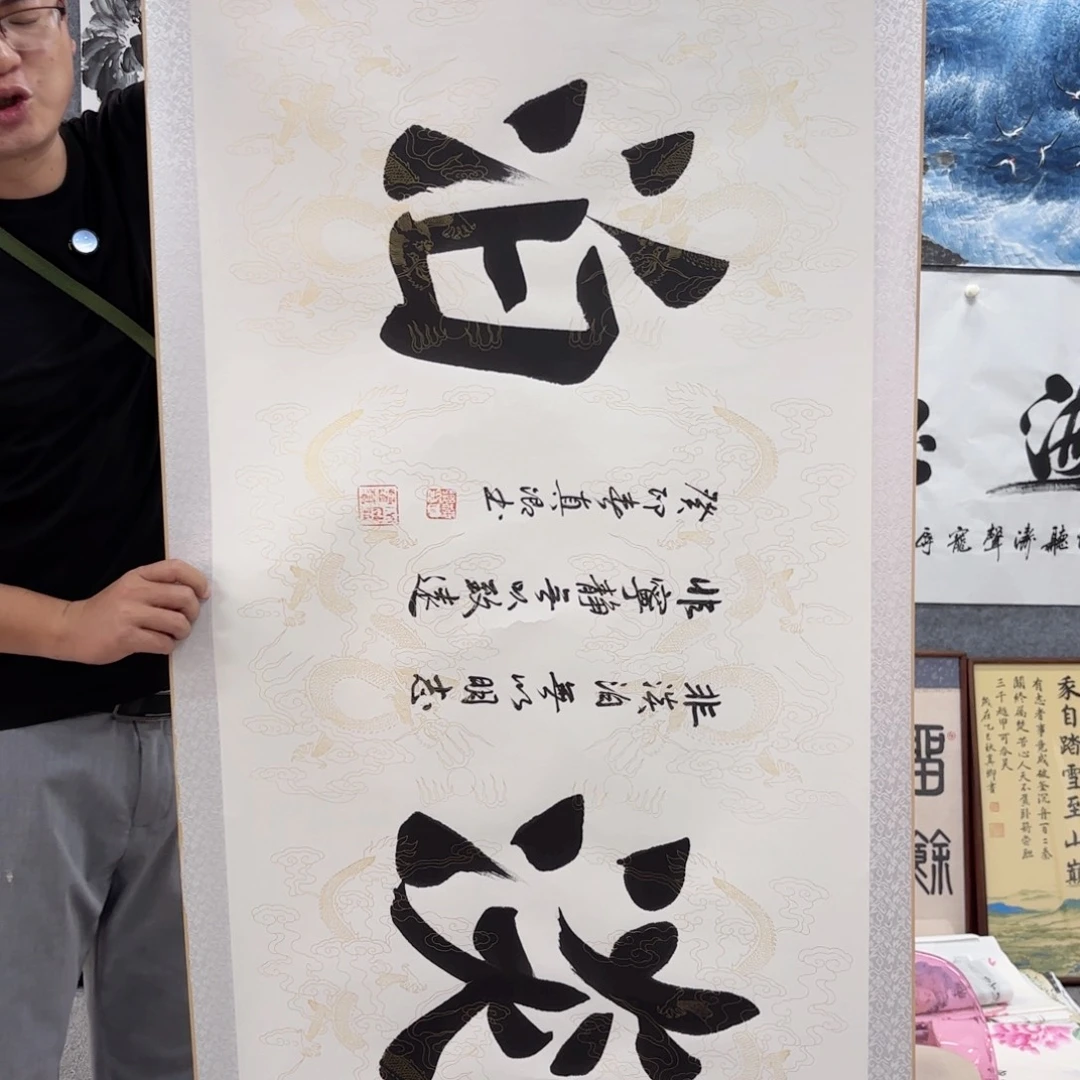 淡泊
非淡泊無以明志
非寧靜無以致遠
癸卯春真書
海
聽濤聲寵辱
留餘
自踏雪至山巔
有志者事竟成破釜沉舟百二秦
關終屬楚苦心人天不負臥薪嘗膽
三千越甲可吞吴